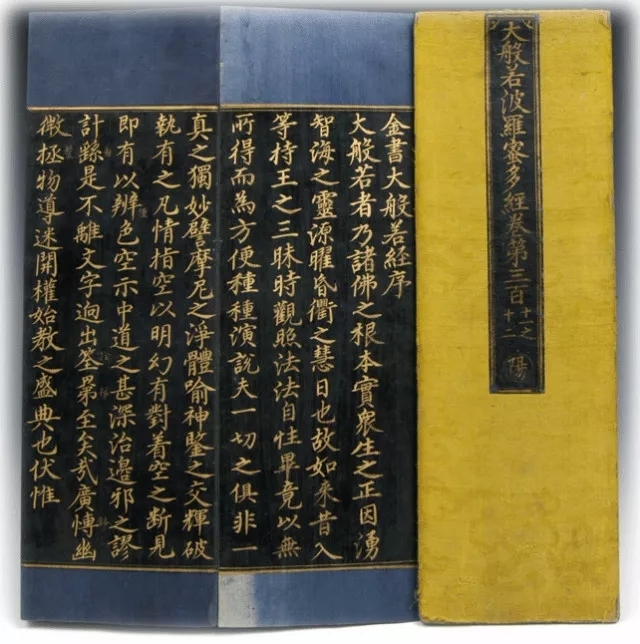 大般若波羅蜜多經卷第三百
十一之
十二
陽
金書大般若經序
大般若者乃諸佛之根本實衆生之正因湧
智海之靈源曜昏衢之慧日也故如來昔入
等持王之三昧時觀照法法自性畢竟以無
所得而為方便種種演說夫一切之俱非一
真之獨妙譬摩尼之浮體喻神鑒之交輝破
執有之凡情指空以明幻有對着空之断見
即有以辨色空示中道之甚深治邊邪之謬
計繇是不離文字逈出筌至矣哉廣慱幽
微拯物導迷開權始教之盛典也伏惟